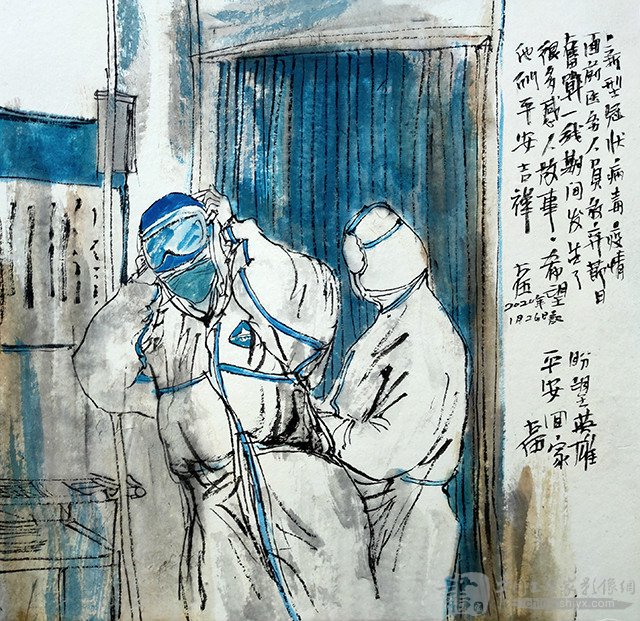 ·新型冠状病毒疫情
面前医务人員放弃节日
奮戰一线期间发生了
很多感人故事·希望
他们平安吉祥
2020年
1月26日晨
盼望英雄
平安回家
影像網